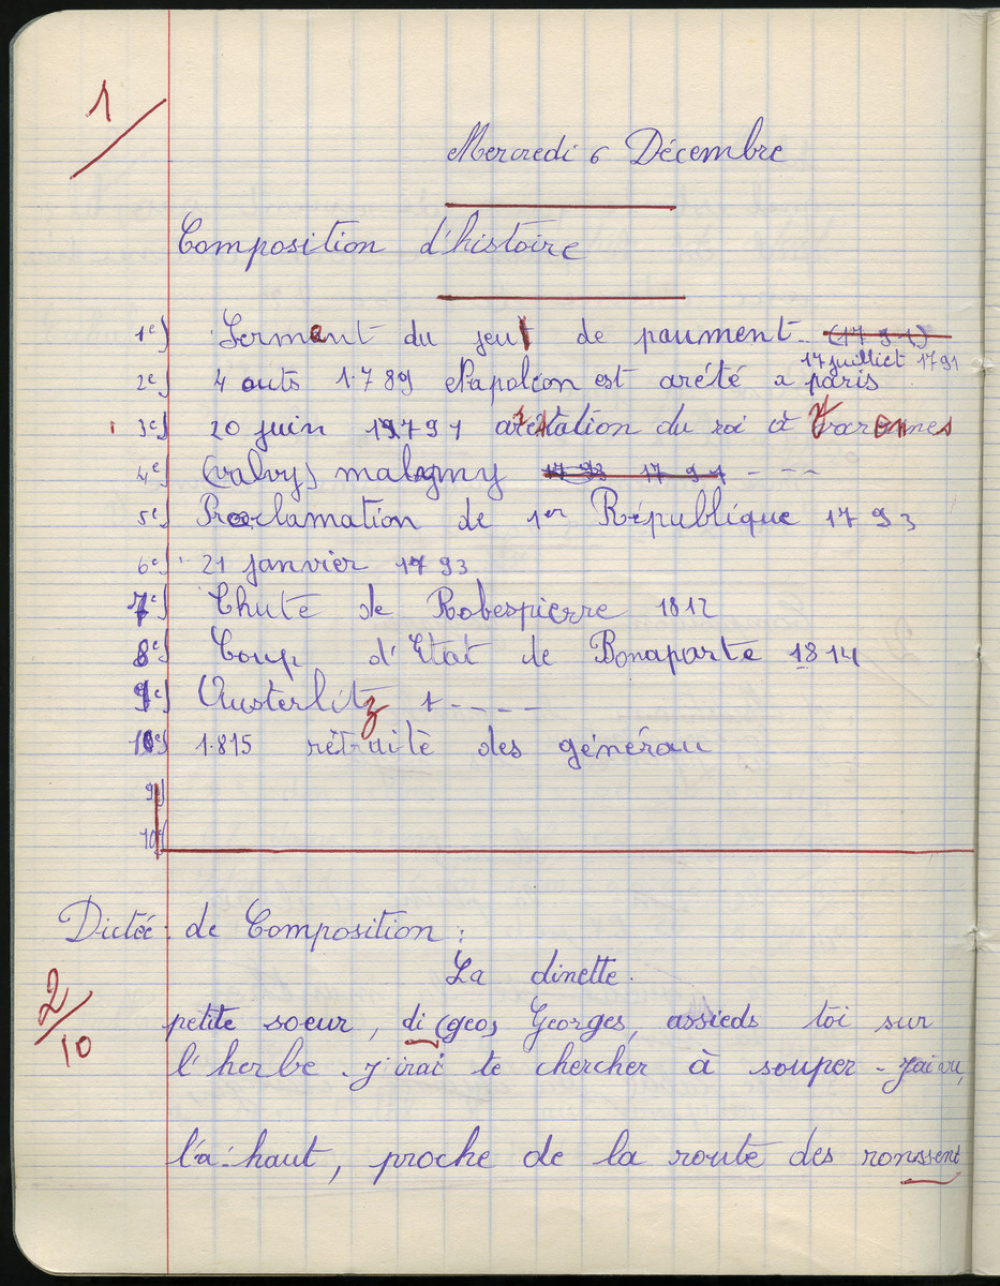 1
Mercredi 6 Décembre
Composition d'histoire
1e) Serment du jeut de paument.
17 juilliet 1791
2e) 4 outs 1.789 Napoléon est arété a paris
3e) 20 juin 1791 du roi à Varennes
4e) (valvy) malgmy - - -
5e) Proclamation de 1er République 1793
6e) 21 janvier 1793
7e) Chute de Robespierre 1812
8e) Coup d'Etat de Bonaparte 1814
9e) Austerlitz + - - - -
10e) 1.815 rétraitè des génèrau
9e)
10e)
Dictée de Composition :
La dinette.
2/10
petite soeur, di (geo) Georges, assieds toi sur
l'herbe. j'irai te chercher à souper - j'ai vu,
l'à-haut, proche de la route des ronssent